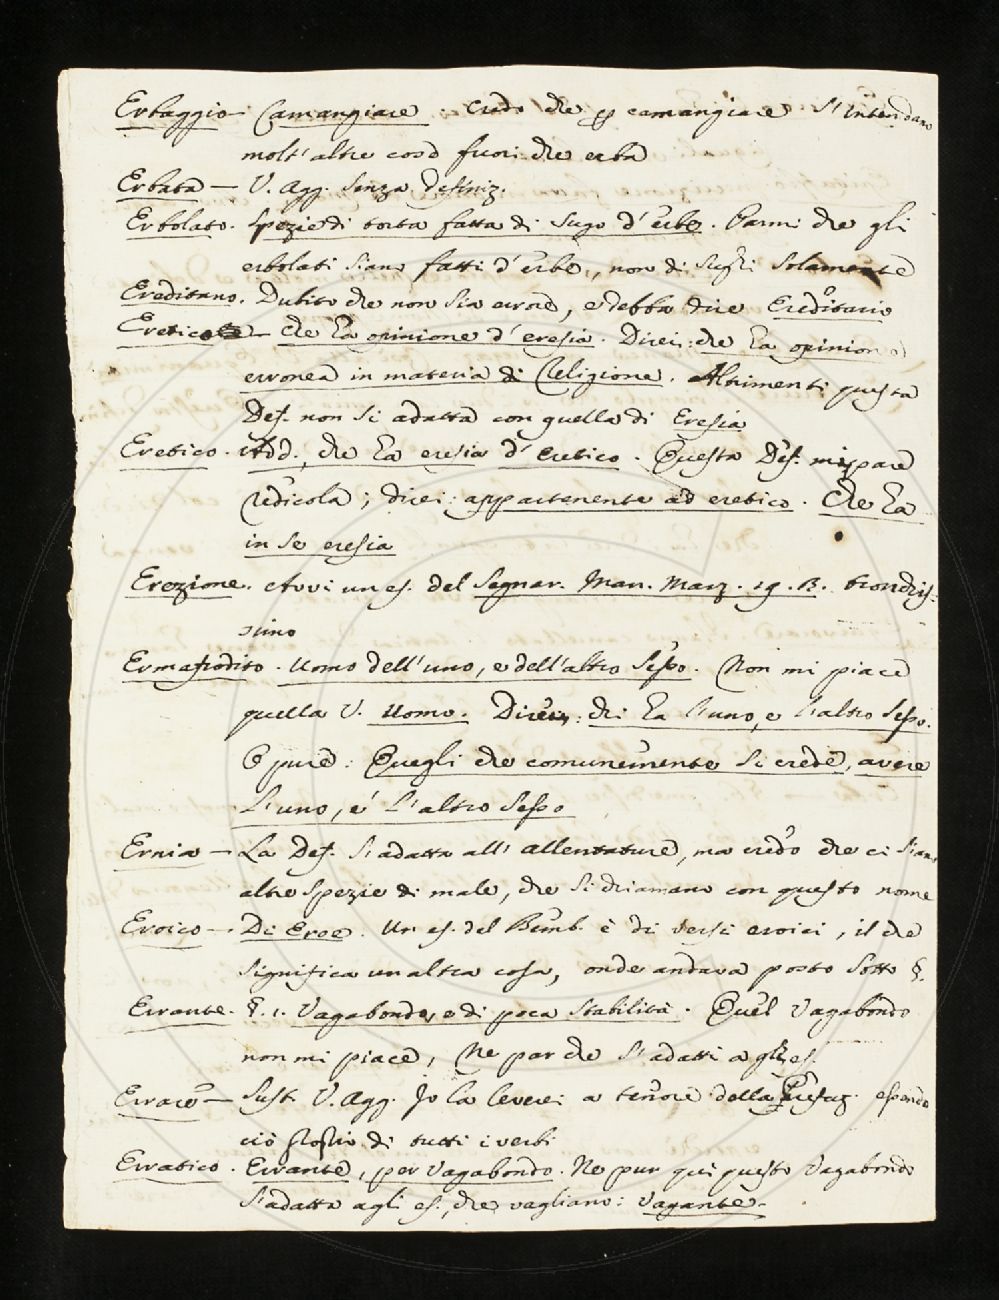 Erbaggio. Camangiare. Credo che p camangiare s'intendano
molt'altre cose fuori che erba
Erbata — V. Agg. senza definiz.
Erbolato. Spezie di torta fatta di sugo d'erbe. Parmi che gli
erbolati siano fatti d'erbe, non di sughi solamente
Ereditano. Dubito che non sia errore, e debba dire Ereditario
Eretico — Che ha opinione d'eresia. Direi: che ha opinione
erronea in materia di Religione. Altrimenti questa
Def. non si adatta con quella di Eresia
Eretico. Add. che ha eresia d'eretico. Questa Def. mi pare
redicola; direi: appartenente ad eretico. Che ha
in se eresia
Erezione. Avvi un es. del Segner. Man. Marz. 19. B. trondis-
simo
Ermafrodito. Uomo dell'uno, e dell'altro sesso. Non mi piace
quella V. Uomo. Direi: chi ha l'uno, e l'altro sesso.
O pure: Quegli che comunemente si crede, avere
l'uno, e l'altro sesso
Ernia — La Def. s'adatta all'allentature, ma credo che ci siano
altre spezie di male, che si chiamano con questo nome
Eroico — Di Eroe. Un es. del Bemb. è di versi eroici, il che
significa un altra cosa, onde andava posto sotto §.
Errante. §. 1. Vagabondo, e di poca stabilità. Quel Vagabondo
non mi piace, Ne par che s'adatti a gli es.
Errare — Sust. V. Agg. Io la leverei a tenore della Prefaz. essendo
ciò proprio di tutti i verbi
Erratico. Errante, per vagabondo. Ne pur qui questo Vagabondo
s'adatta agli es., che vagliano: Vagante.